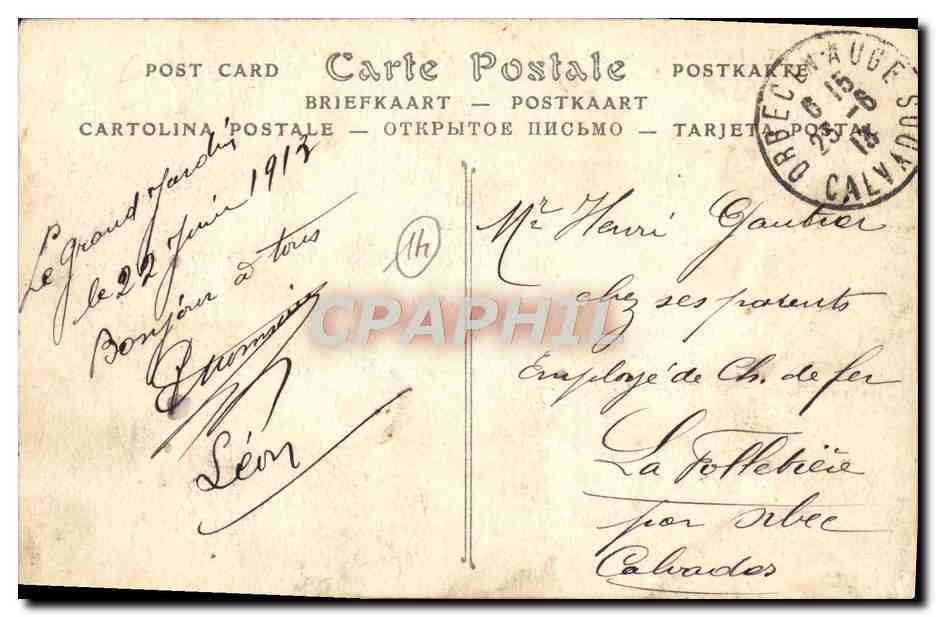 POST CARD Carte Postale POSTKARTE
BRIEFKAART — POSTKAART
CARTOLINA POSTALE — ОТКРЫТОЕ ПИСЬМО — TARJETA POSTAL
ORBEC-EN-AUGE CALVADOS
6 15
23 - 6
13
Le Grand Jardin
le 22 Juin 1913
Bonjour à tous
Léon
14
CPAPHIL
Mr Henri Gautier
chez ses parents
Employé de Ch. de fer
La Folletière
par Orbec
Calvados